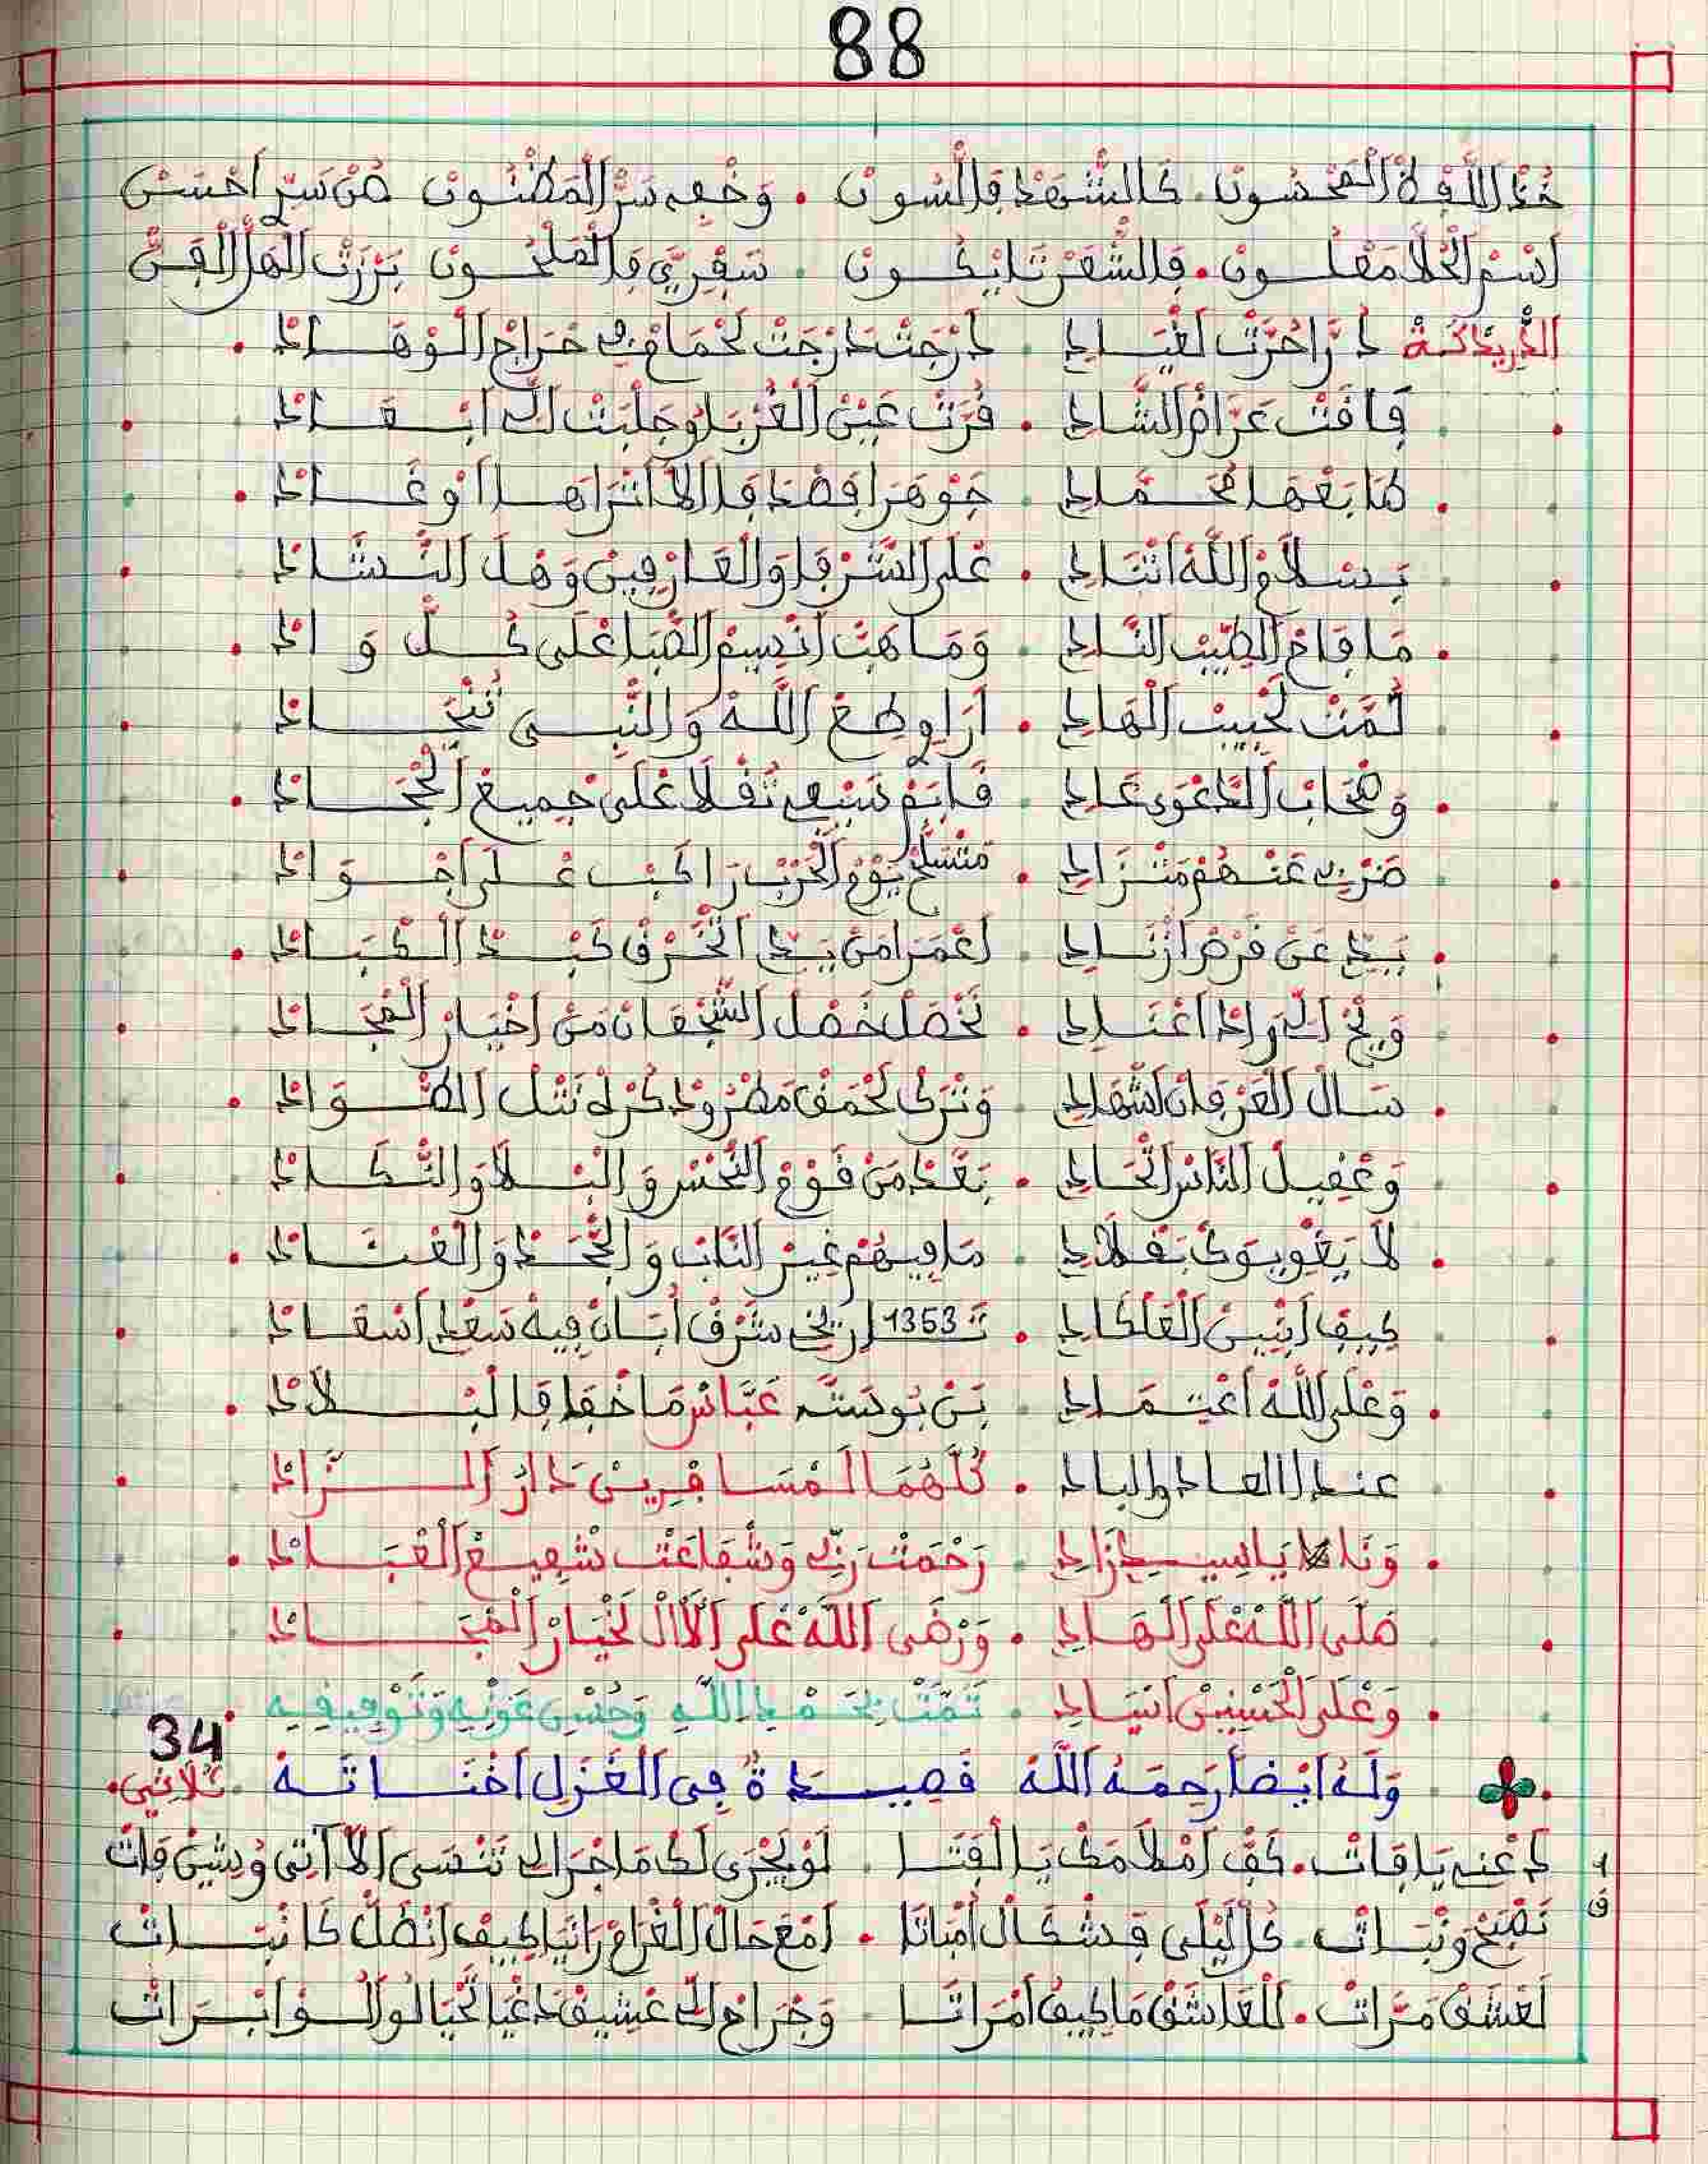 88
خُذْ اللَّفْظْ الْمَحْسُونْ كَالشَّهْدْ فَالسُّونْ . وَخْفِي سَرّْ الْمَظْنُونْ مَنْ سَرّ احْسَنْ
اسْمْ الْحُلَّا مَعْلُونْ . فَالشَّعَرْ نَايْكُونْ . سَفْرِيِّ فَالْمَلْحُونْ بَرْزَتْ الْهَلْ الْفَنّْ
الدَّرِيدْكَةْ دَرَّا حُرَّتْ لَغْيَادِ . دَرْجَتْ دَرْجَتْ لَحْمَاقْ فِي حْرَاجْ الْوْهَادْ .
فَافَتْ عَزَّامْ الشَّادِ . فُرَّتْ عَيْنْ الْغُرْبَا وُجَلْبَتْ لَكْ ابْعَادْ .
هَا بَعْهَا مُحَمَّادِ . جَوْهَرْ افْضَدْ فَالَا اتْرَاهَا اوْغَادْ .
بَسْلَامْ اللَّهْ اتْنَادِ . عْلَى الشُّرْفَا وَالْعَارْفِينْ وَهْلَ النَّشَادْ .
مَا فَاحْ الطِّيبْ النَّادِ . وَمَا هَبّْ انْسِيمْ الصّْبَا عْلَى كُلّْ وَادْ .
تُمَّتْ لَحْبِيبْ الْهَادِ . ارَاوِ طَعْ اللَّهْ وَالنَّبِي تُنْجَادْ .
وَصْحَابْ الدَّعْوَى عَادِ . فَابَمْ سَيْفِي نَفْلَا عْلَى جْمِيعْ الْجْحَادْ .
ضَرْبِي عَنْهُمْ مَتْزَادِ . مَتْسَلَّحْ يَوْمْ الْحَرْبْ رَاكَبْ عْلَى اجْوَادْ .
بَيْدِ عَنْ فَرْضْ ازْنَادِ . اعْمَرْ امَنْ يَدِّ اتَّحْرَقْ كَبْدْ الْكْبَادْ .
وَيْحْ الِّ رَادْ اعْنَادِ . نَحْصَلْ خَصْلْ الشَّجْعَانْ مَنْ اخْيَارْ الْمْجَادْ .
سَالْ الْعَرْفَانْ اشْهَادِ . وَنْتَرْكْ لَحْمَقْ مَطْرُودْ كُرْهْ نَتْلْ الطّْوَادْ .
وَعْفِيلْ النَّاسْ اتْحَادِ . بَعْدْ مَنْ قَوْمْ النَّحْسْ وَالْبْلَا وَالنّْكَادْ .
لَا يَغْوِيوَكْ بَفْلَادِ . مَا فِيهُمْ غِيرْ النَّابْ وَالْجُّحَدْ وَالْعْتَادْ .
كِيفْ ايْبِينْ الْعَلْكَادِ . تَ 1353 ارِيخْ شَرْفْ ابَانْ فِيهْ سَعْدْ اسْعَادْ .
وَعْلَى اللَّهْ اعْتِمَادِ . بَنْ بُوسْتَّه عَبَّاسْ مَا خْفَا فَالْبْلَادْ .
عند العاد والباد . كُلّْهُمَا لَمْسَافْرِينْ دَارْ الزَّادْ .
وَنَا يَا سِيدِ زَادِ . رَحْمَتْ رَبِّي وَشْفَاعَتْ شْفِيعْ الْعْبَادْ .
صَلَّى اللَّهْ عْلَى الْهَادِ . وَرْضَى اللَّهْ عْلَى الْآلْ لَخْيَارْ الْمْجَادْ .
وَعْلَى الْحَسْنِينْ اسْيَادِ . تَمَّتْ بِحَمْدِ اللَّهِ وَحُسْنِ عَوْنِهِ وَتَوْفِيقِهِ . 34
وَلَهُ أَيْضًا رَحِمَهُ اللَّهُ قَصِيدَةٌ فِي الْغَزَلِ اخْنَاتَةْ . ثُلَاثِي .
دَعْنِي يَا فَاتْ . كَفّْ امْلَامَكْ يَا لَفْتَا . لَوْ يَجْرَى لَكْ مَا جْرَا لِي تَنْسَى الَا اتِي وُشِينْ فَاتْ
نَصْبَحْ وَنْبَاتْ . كُلّْ لَيْلَى فَشْكَالْ امْبَاتَا . امْعَ حَالْ الْغْرَامْ رَانْيَا كِيفْ انْظَلّْ كَا نْبَاتْ
لَعْشَقْ مَرَّاتْ . لَلْعَاشَقْ مَا كِيفُ امْرَاتَا . وَجْرَاحْ الِّ عْشِيقْ دَغْيَا تَحْيَا لُو الُوا ابْرَاتْ